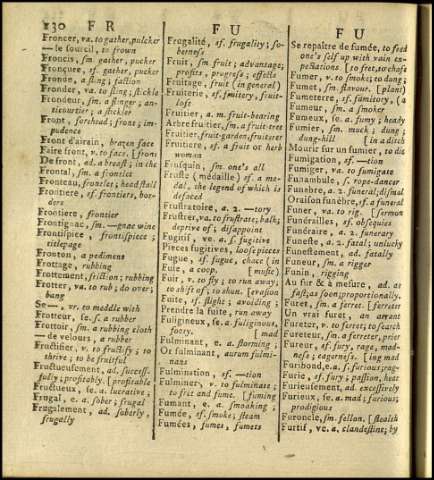 130 FR
Froncer, va. to gather, pucker
— le sourcil, to frown
Froncis, sm. gather, pucker
Fronçure, sf. gather, pucker
Fronde, a sling; faction
Fronder, va. to sling; stickle
Frondeur, sm. a slinger; an-
ticourtier; a stickler
Front, forehead; front; im-
pudence
Front d'airain, brazen face
Faire front, v. to face. [front
De front, ad. a breast; in the
Frontal, sm. a frontlet
Fronteau, frontlet; headstall
Frontiere, sf. frontiers, bor-
ders
Frontiere, frontier
Frontignac, sm. —gnac wine
Frontispice, frontispiece;
titlepage
Fronton, a pediment
Frottage, rubbing
Frottement, friction; rubbing
Frotter, va. to rub; do over;
bang
Se —, vr. to meddle with
Frotteur, se. a rubber
Frottoir, sm. a rubbing cloth
— de velours, a rubber
Fructifier, v. to fructify; to
thrive; to be fruitful
Fructueusement, ad. success-
fully; profitably. [profitable
Fructueux, se. a. lucrative,
Frugal, e. a. sober; frugal
Frugalement, ad. soberly,
frugally
FU
Frugalité, sf. frugality; so-
berness
Fruit, sm. fruit; advantage;
profits, progress; effects
Fruitage, fruit (in general)
Fruiterie, sf. fruitery, fruit-
loft
Fruitier, a. m. fruit-bearing
Arbre fruitier, sm. a fruit-tree
Fruitier, fruit-garden, fruiterer
Fruitiere, sf. a fruit or herb
woman
Frusquin, sm. one's all
Fruste (médaille) sf. a me-
dal, the legend of which is
defaced
Frustratoire, a. 2. —tory
Frustrer, va. to frustrate; balk;
deprive of; disappoint
Fugitif, ve. a. s. fugitive
Pieces fugitives, loose pieces
Fugue, sf. fugue, chace (in
Fuie, a coop. [music)
Fuir, v. to fly; to run away;
to shift of; to shun. [evasion
Fuite, sf. flight; avoiding;
Prendre la fuite, run away
Fuligineux, se. a. fuliginous,
sooty. [mad
Fulminant, e. a. storming;
Or fulminant, aurum fulmi-
nans
Fulmination, sf. —tion
Fulminer, v. to fulminate;
to fret and fume. [fuming
Fumant, e. a. smoaking;
Fumée, sf. smoke; steam
Fumées, fumes, fumets
FU
Se repaître de fumée, to feed
one's self up with vain ex-
pectations. [to fret, to chafe
Fumer, v. to smoke; to dung;
Fumet, sm. flavour. [plant)
Fumeterre, sf. fumitory, (a
Fumeur, sm. a smoker
Fumeux, se. a. fumy; heady
Fumier, sm. muck; dung;
dung-hill [in a ditch
Mourir sur un fumier, to die
Fumigation, sf. —tion
Fumiger, va. to fumigate
Funambule, s. rope-dancer
Funebre, a. 2. funeral, dismal
Oraison funébre, sf. a funeral
Funer, va. to rig. [sermon
Funérailles, sf. obsequies
Funéraire, a. 2. funerary
Funeste, a. 2. fatal; unlucky
Funestement, ad. fatally
Funeur, sm. a rigger
Funin, rigging
Au fur & à mesure, ad. as
fast, as soon; proportionally.
Furet, sm. a ferret. [ferreter
Un vrai furet, an arrant
Fureter, v. to ferret; to search
Fureteur, sm. a ferreter, prier
Fureur, sf. fury, rage, mad-
ness; eagerness. [ing mad
Furibond, e. a. s. furious; rag-
Furie, sf. fury; passion, heat
Furieusement, ad. excessively
Furieux, se. a. mad; furious;
prodigious
Furoncle, sm. fellon. [stealth
Furtif, ve. a. clandestine; by